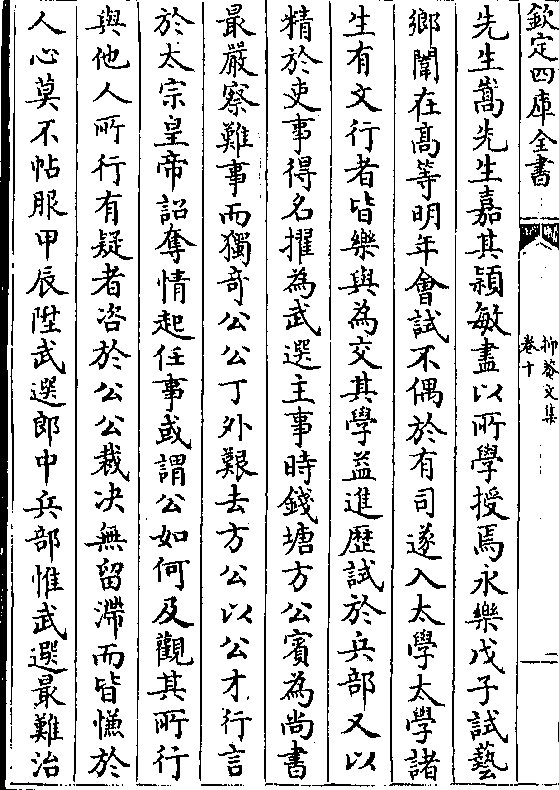 欽定四庫全書
抑菴文集
卷十
二
先生嵩先生嘉其穎敏盡以所學授焉永樂戊子試藝
鄉闈在髙等明年會試不偶於有司遂入太學太學諸
生有文行者皆樂與為交其學益進歴試於兵部又以
精於吏事得名擢為武選主事時錢塘方公賓為尚書
最嚴察難事而獨奇公公丁外艱去方公以公才行言
於太宗皇帝詔奪情起任事或謂公如何及觀其所行
與他人所行有疑者咨於公公裁决無留滯而皆慊於
人心莫不帖服甲辰陞武選郎中兵部惟武選最難治